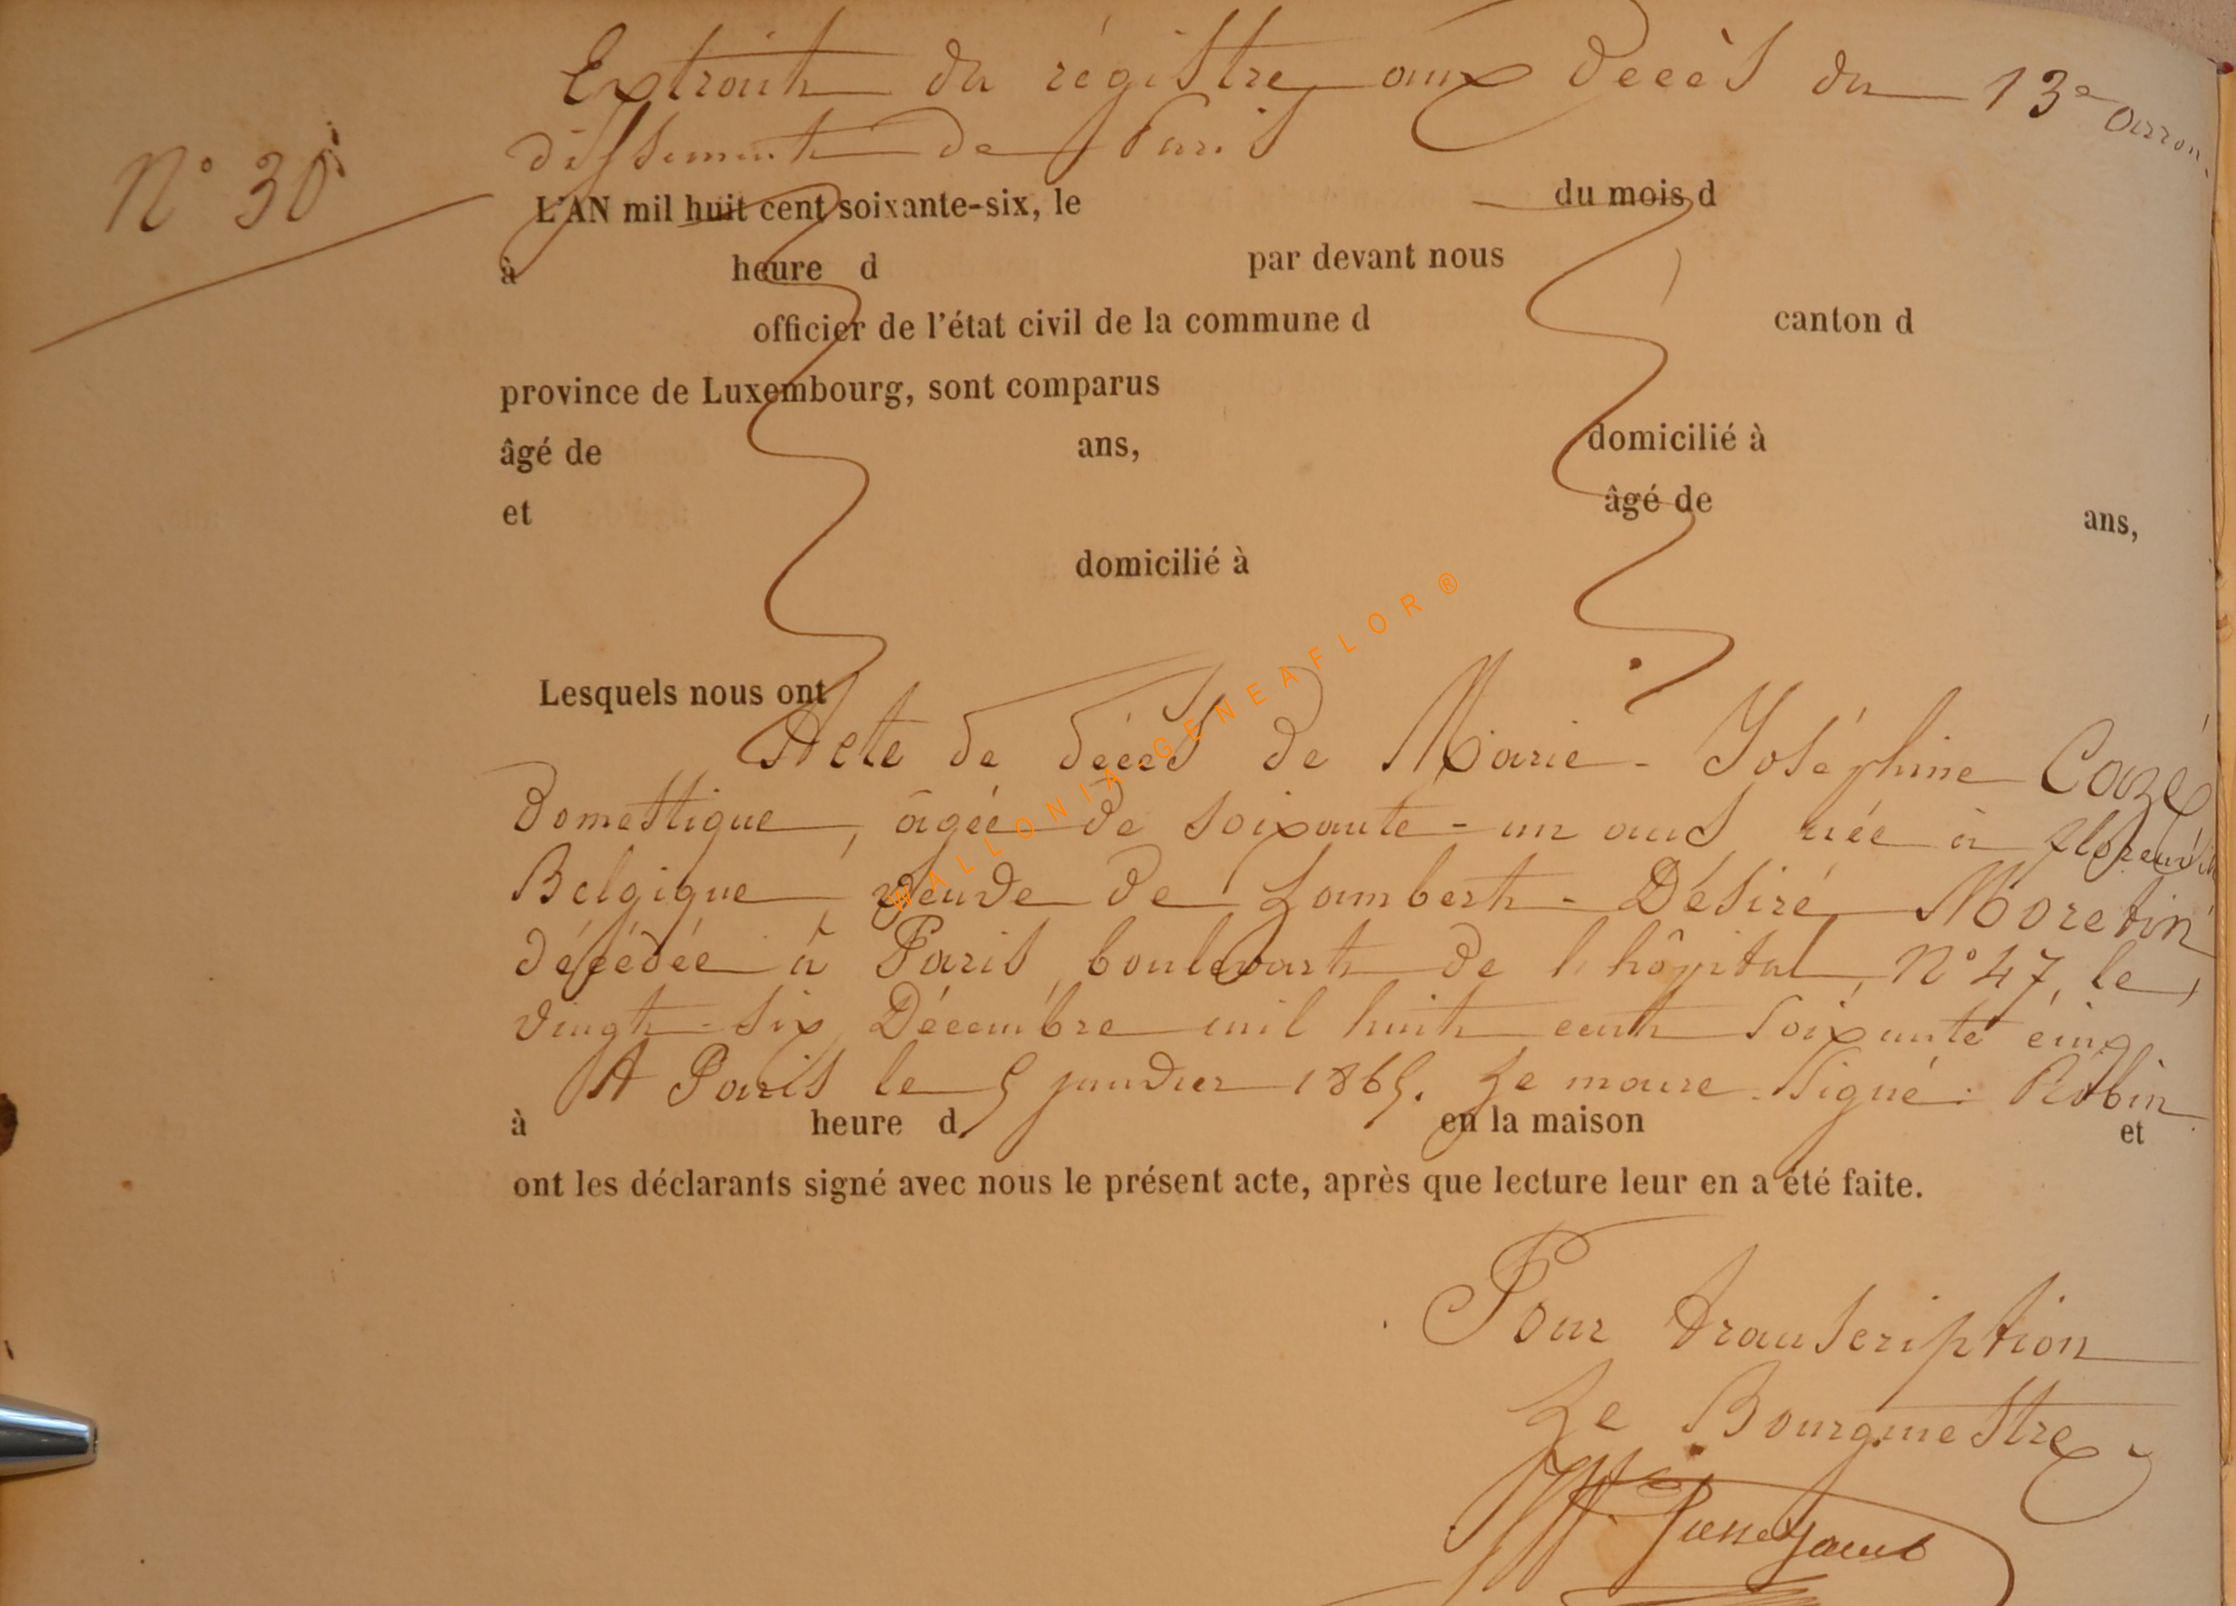 Extrait du régistre aux décès du 13e arron
dissement de Paris
N° 30
L'AN mil huit cent soixante-six, le du mois d
à heure d par devant nous
officier de l'état civil de la commune d canton d
province de Luxembourg, sont comparus
âgé de ans, domicilié à
et âgé de ans,
domicilié à
Lesquels nous ont
Acte de décès de Marie-Joséphine Cazé
Domestique, âgée de soixante-un ans née à
Belgique, veuve de Lambert-Désiré Moretin
décédée à Paris, boulevart de l'hôpital, N° 47, le
vingt-six Décembre mil huit cent soixante cinq.
A Paris le 5 janvier 1865. Le maire signé: Robin
à heure d en la maison et
ont les déclarants signé avec nous le présent acte, après que lecture leur en a été faite.
Pour transcription
Le Bourgmestre
WALLONIA GENEAFLOR ®